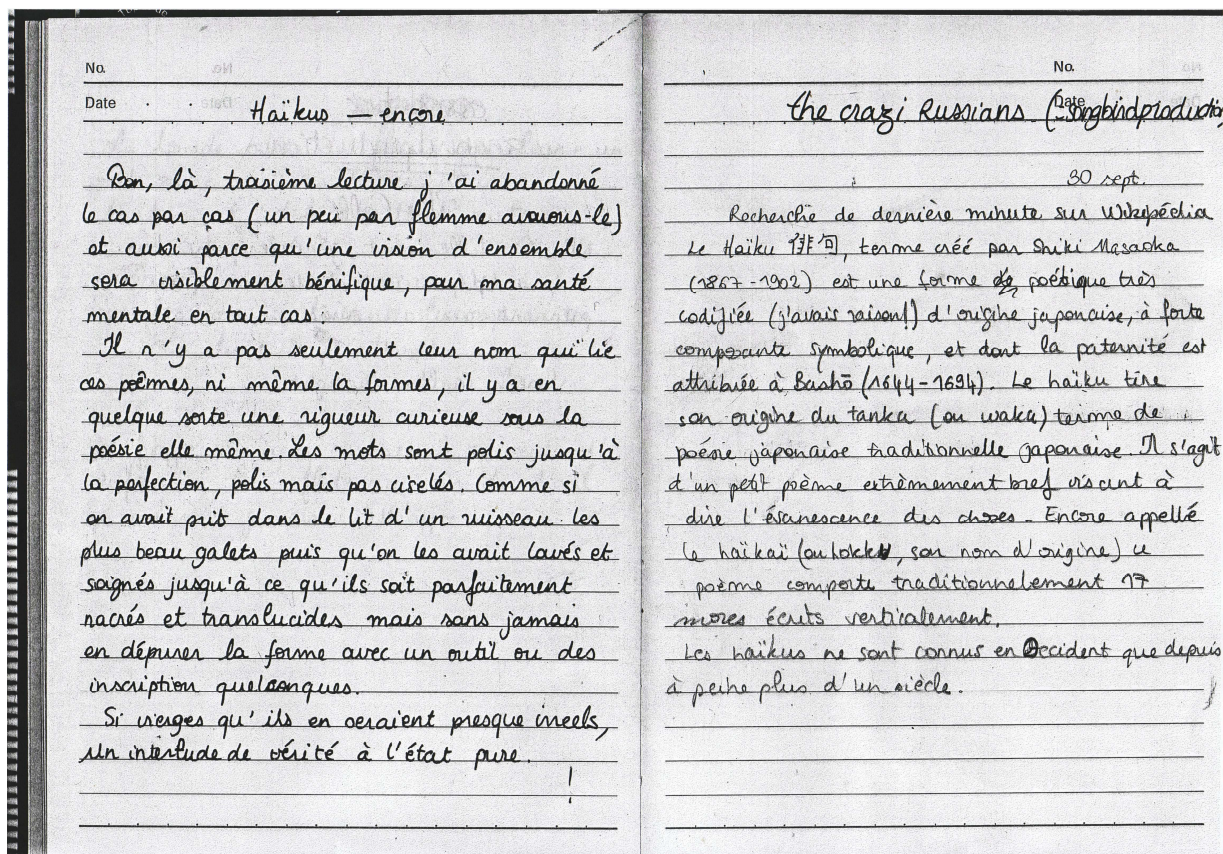 No.
Date
Haïkus — encore
Bon, là, troisième lecture j'ai abandonné
le cas par cas (un peu par flemme avouons-le)
et aussi parce qu'une vision d'ensemble
sera visiblement bénifique, pour ma santé
mentale en tout cas.
Il n'y a pas seulement leur nom qui lie
ces poêmes, ni même la formes, il y a en
quelque sorte une rigueur curieuse sous la
poésie elle même. Les mots sont polis jusqu'à
la perfection, polis mais pas ciselés. Comme si
on avait prit dans le lit d'un ruisseau les
plus beau galets puis qu'on les avait lavés et
soignés jusqu'à ce qu'ils soit parfaitement
nacrés et translucides mais sans jamais
en dépurer la forme avec un outil ou des
inscription quelconques.
Si vierges qu'ils en seraient presque irréels,
Un interlude de vérité à l'état pure.
!
No.
Date
the crazi Russians (-Songbirdproduction
30 sept.
Recherche de dernière minute sur Wikepédia
Le Haïku 俳句, terme créé par Shiki Masaoka
(1867-1902) est une forme poétique très
codifiée (j'avais raison!) d'origine japonaise, à forte
composante symbolique, et dont la paternité est
attribuée à Bashō (1644-1694). Le haïku tire
son origine du tanka (ou waka) terme de
poésie japonaise traditionnelle japonaise. Il s'agit
d'un petit poème extrèmement bref visant à
dire l'évanescence des choses. Encore appellé
le haïkaï (ou hokku, son nom d'origine) ce
poème comporte traditionnelement 17
mores écrits verticalement.
Les haïkus ne sont connus en Occident que depuis
à peine plus d'un siècle.